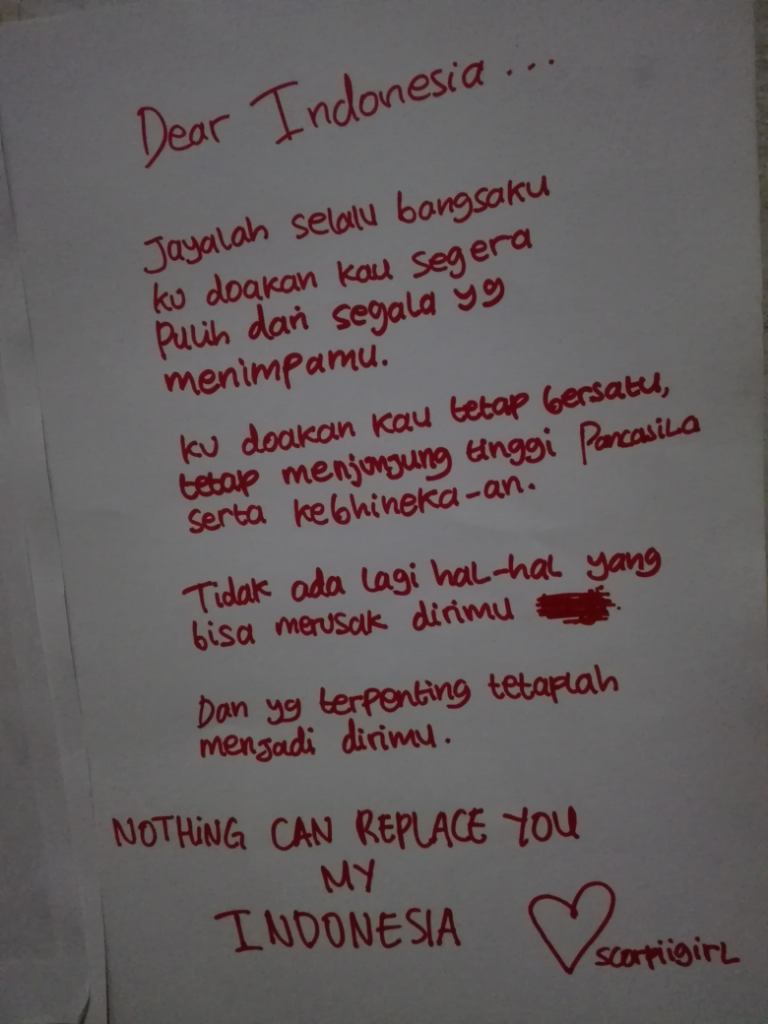 Dear Indonesia...
Jayalah selalu bangsaku
ku doakan kau segera
Pulih dari segala yg
menimpamu.
ku doakan kau tetap bersatu,
tetap menjunjung tinggi Pancasila
serta kebhineka-an.
Tidak ada lagi hal-hal yang
bisa merusak dirimu
Dan yg terpenting tetaplah
menjadi dirimu.
NOTHING CAN REPLACE YOU
MY
INDONESIA
scorpiigirl